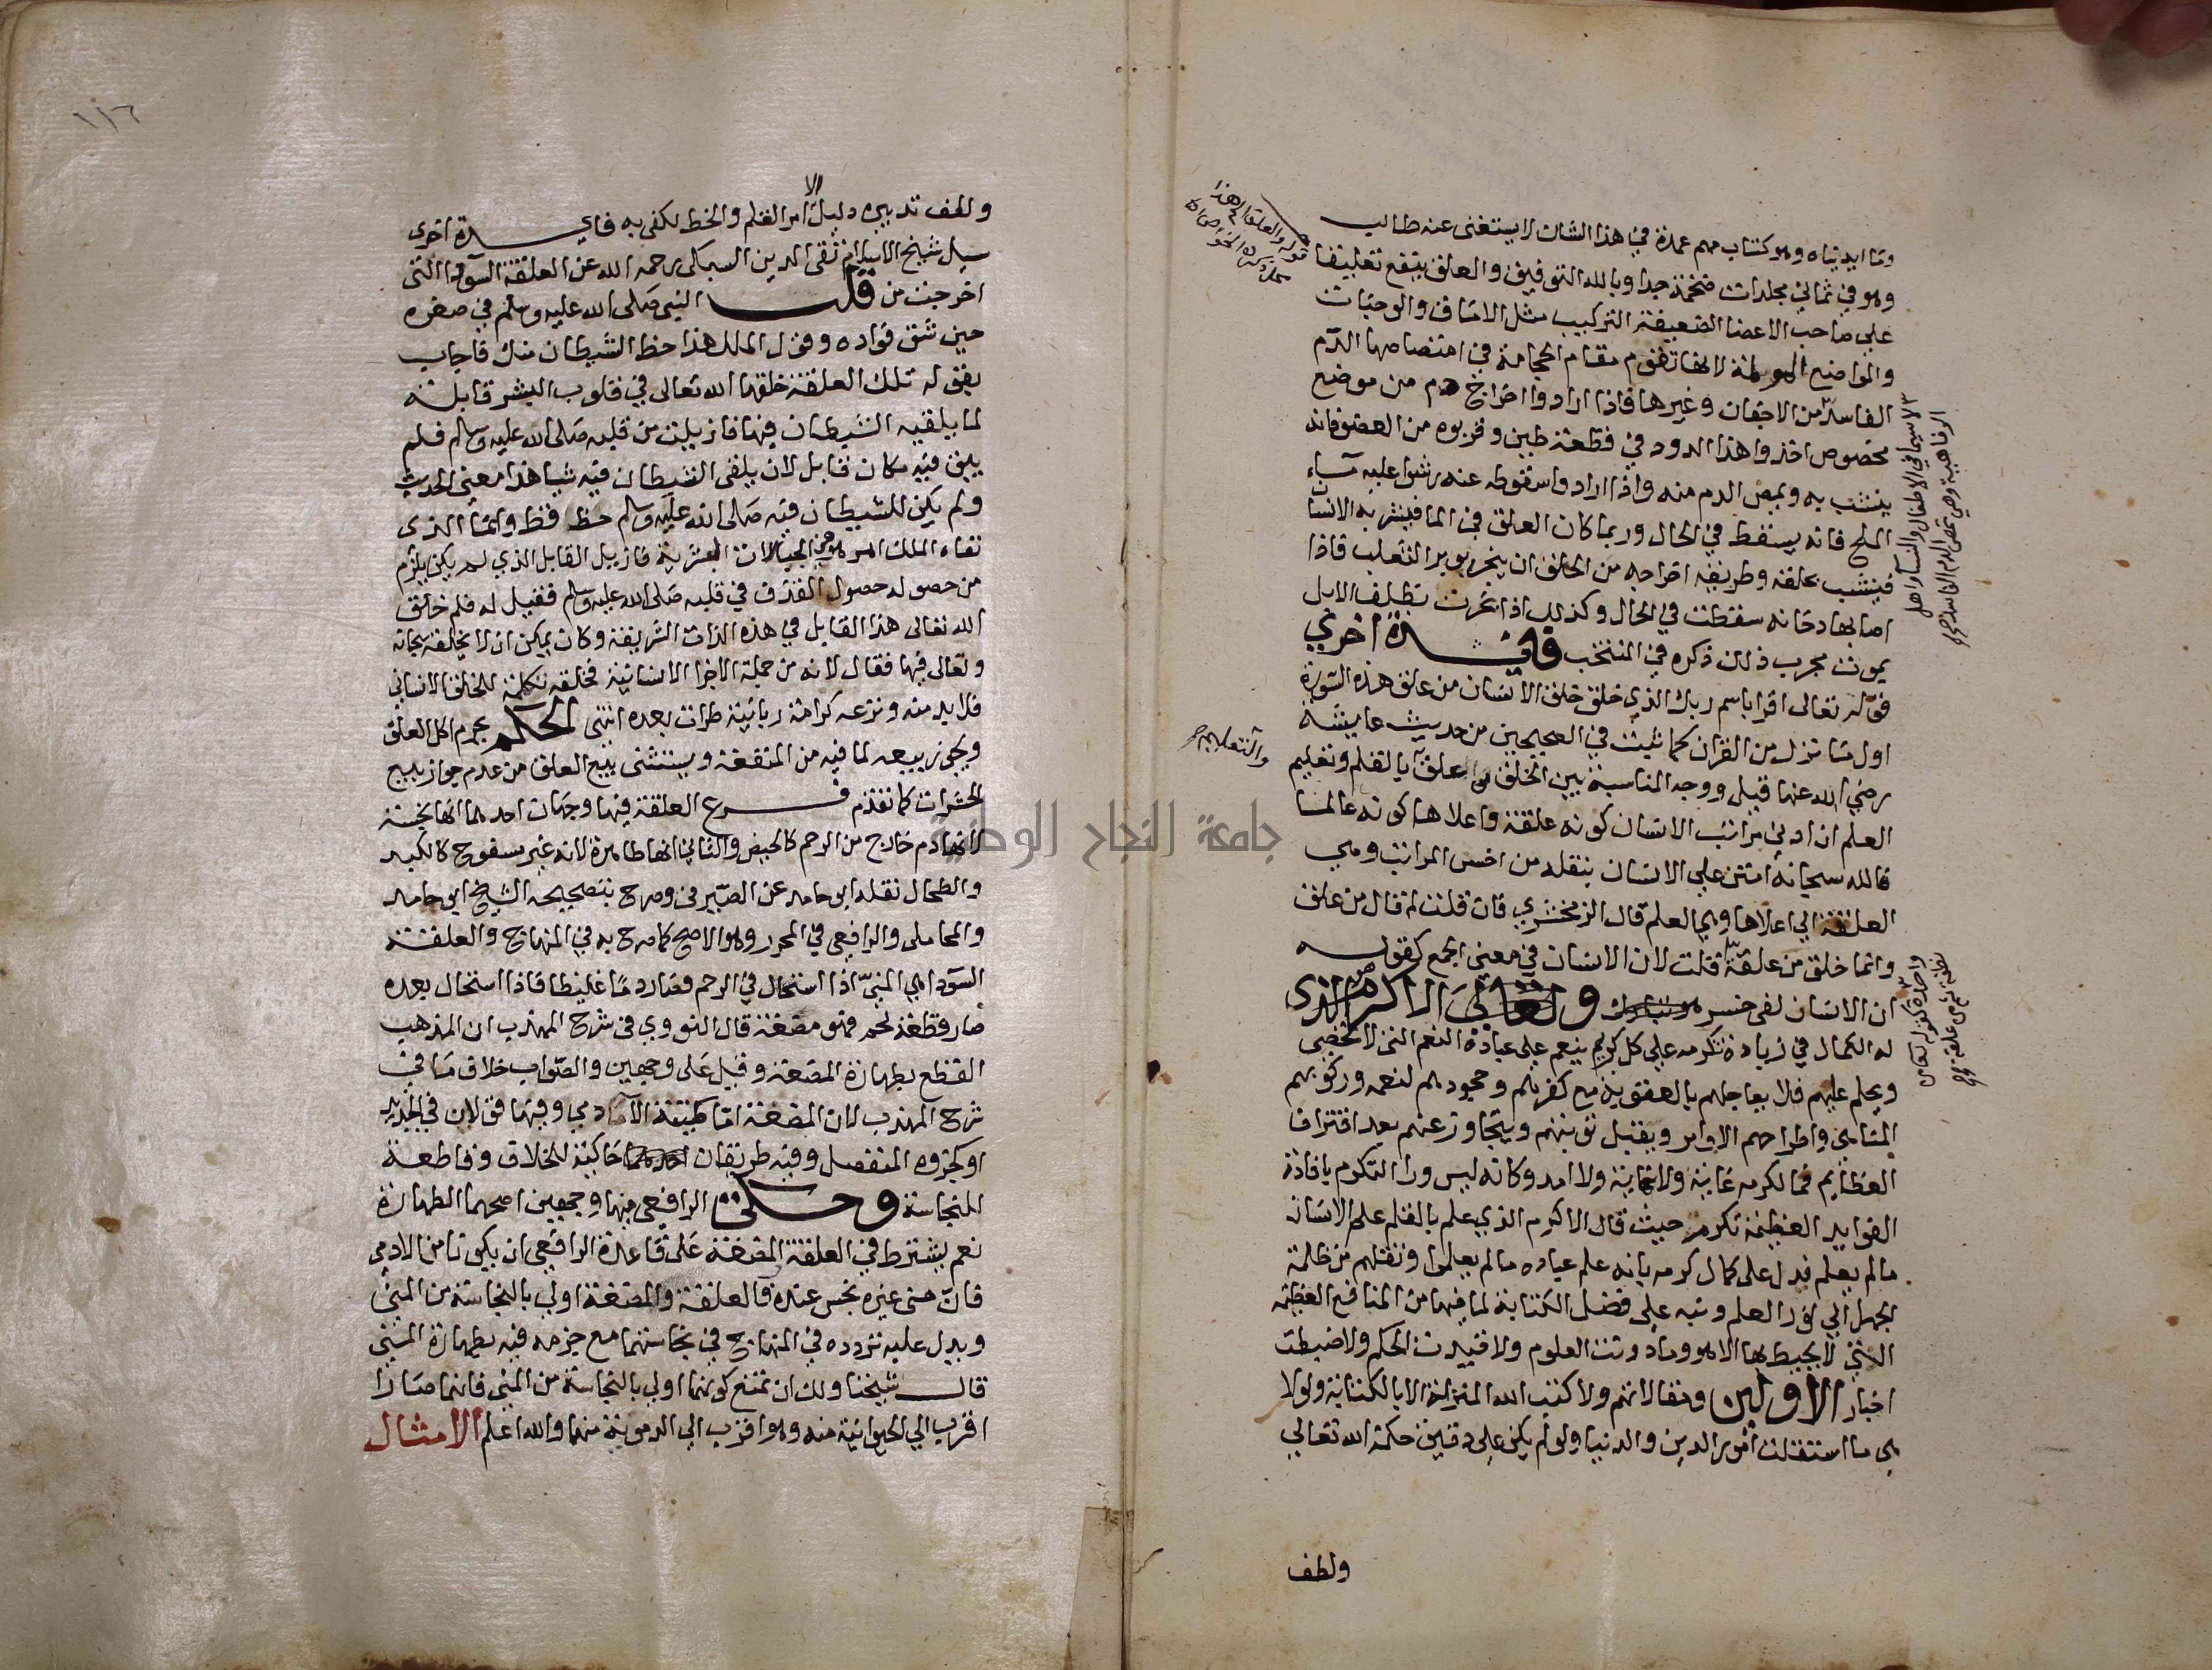 وما ابدبناه وهو كتاب مهم عمدة في هذا الشان لا يستغنى عنه طالب
وهو في ثماني مجلدات ضخمة جدا وبالله التوفيق والعلق ينفع تعليقا
على صاحب الاعضا الضعيفة التركيب مثل الاماق والوجنات
والمواضع المولمة لانها تقوم مقام الحجامة في امتصاصها الدم
الفاسد من الاجفان وغيرها فاذا ارادوا اخراج دم من موضع
مخصوص اخذوا هذا الدود في قطعة طين وقربوه من العضو فانه
ينشب به ويمص الدم منه واذا ارادوا سقوطه عنه رشوا عليه ماء
الملح فانه يسقط في الحال وربما كان العلق في الما فيشربه الانسان
فينشب بحلقه وطريقه اخراجه من الحلق ان يبخر بوبر الثعلب فاذا
اصابها دخانه سقطت في الحال وكذلك اذا بخرت بظلف الابل
يموت مجرب ذلك ذكره في المنتخب فايدة اخري
قوله تعالى اقرا باسم ربك الذي خلق خلق الانسان من علق هذه السورة
اول ما نزل من القران كما ثبت في الصحيحين من حديث عايشة
رضي الله عنها قيل ووجه المناسبة بين الخلق من العلق بالقلم وتعليم
العلم ان ادنى مراتب الانسان كونه علقة واعلاها كونه عالما
فالله سبحانه امتن على الانسان بنقله من اخس المراتب وهي
العلقة الي اعلاها وهي العلم قال الزمخشري فان قلت لم قال من علق
وانما خلق من علقة قلت لان الانسان في معنى الجمع كقوله
ان الانسان لفى خسر وتعالى الاكرم الذى
له الكمال في زيادة تكرمه علي كل كريم ينعم على عبادة النعم التى لا تحصى
ويحلم عليهم فلا يعاجلهم بالعقوبة مع كفرهم وجحودهم لنعمه وركوبهم
المناهى واطراحهم الاوامر ويقبل توبتهم ويتجاوز عنهم بعد اقتراف
العظايم فما لكرمه غاية ولا نهاية ولا امد وكانه ليس ورا التكرم بافادة
الفوايد العظيمة تكرم حيث قال الاكرم الذي علم بالقلم علم الانسان
مالم يعلم فدل على كمال كرمه بانه علم عباده مالم يعلموا ونقلهم من ظلمة
الجهل الي نور العلم ونبه على فضل الكتابة لما فيها من المنافع العظيمه
التي لا يحيط بها الا هو وما دونت العلوم ولا قيدت الحكم ولا ضبطت
اخبار الاولين ومقالاتهم ولا كتب الله المنزلة الا بالكتابة ولولا
هى ما استقلت امور الدين والدنيا ولو لم يكن على دقيق حكمة الله تعالي
ولطف
لا سيما في الاطفال والنساء واهل
الرفاهية وهي تمص الدم الفاسد صح
واحدة كقوله تعالى
نطفة ثم من علقة صح
١١٦
ولطف تدبيره دليل الا امر القلم والخط لكفى به فايدة اخرى
سيل شيخ الاسلام تقى الدين السبكى رحمه الله عن العلقة السودا التى
اخرجت من قلب النبى صلى الله عليه وسلم في صغره
حين شق فواده وقول الملك هذا حظ الشيطان منك فاجاب
بقوله تلك العلقة خلقها الله تعالى في قلوب البشر قابلة
لما يلقيه الشيطان فيها فازيلت من قلبه صلى الله عليه وسلم فلم
يبق فيه مكان قابل لان يلقى الشيطان فيه شيا هذا معنى الحديث
ولم يكن للشيطان فيه صلى الله عليه وسلم حظ قط وانما الذى
نفاه الملك امر هو في الجبلات البشرية فازيل القابل الذي لم يكن يلزم
من حصوله حصول القذف في قلبه صلى الله عليه وسلم فقيل له فلم خلق
الله تعالى هذا القابل في هذه الذات الشريفة وكان يمكن ان لا يخلقه سبحانه
وتعالى فيها فقال لانه من جملة الاجزا الانسانية فخلقه تكملة للخلق الانساني
فلا بد منه ونزعه كرامة ربانية طرات بعده انتهى الحكم يحرم اكل العلق
ويجوز بيعه لما فيه من المنفعة ويستثنى بيع العلق من عدم جواز بيع
الحشرات كما تقدم فرع العلقة فيها وجهان احدهما انها نجسة
لانها دم خارج من الرحم كالحيض والثاني انها طاهرة لانه غير مسفوح كالكبد
والطحال نقله ابو حامد عن الصيرفى وصرح بتصحيحه الشيخ ابو حامد
والمحاملى والرافعى في المحرر وهو الاصح كما صرح به في المنهاج والعلقة
السودا هي المنى اذا استحال في الرحم فصار دما غليظا فاذا استحال بعده
صار قطعة لحم فهو مضغة قال النووي فى شرح المهذب ان المذهب
القطع بطهارة المضغة وقيل على وجهين والصواب خلاف ما في
شرح المهذب لان المضغة اما كميتة الادمي وفيها قولان في الجديد
او كجزوه المنفصل وفيه طريقان حاكية للخلاف وقاطعة
النجاسة وحكى الرافعى فيها وجهين اصحهما الطهارة
نعم يشترط في العلقة المضغة على قاعدة الرافعى ان يكونا من الادمى
فان منى غيره نجس عنده فالعلقة والمضغة اولى بالنجاسة من المنى
ويدل عليه تردده في المنهاج في نجاستهما مع جزمه فيه بطهارة المنى
قال شيخنا ولك ان تمنع كونهما اولي بالنجاسة من المني فانهما صارا
اقرب الي الحيوانية منه وهو اقرب الي الدموية منهما والله اعلم الامثال
جامعة النجاح الوطنية